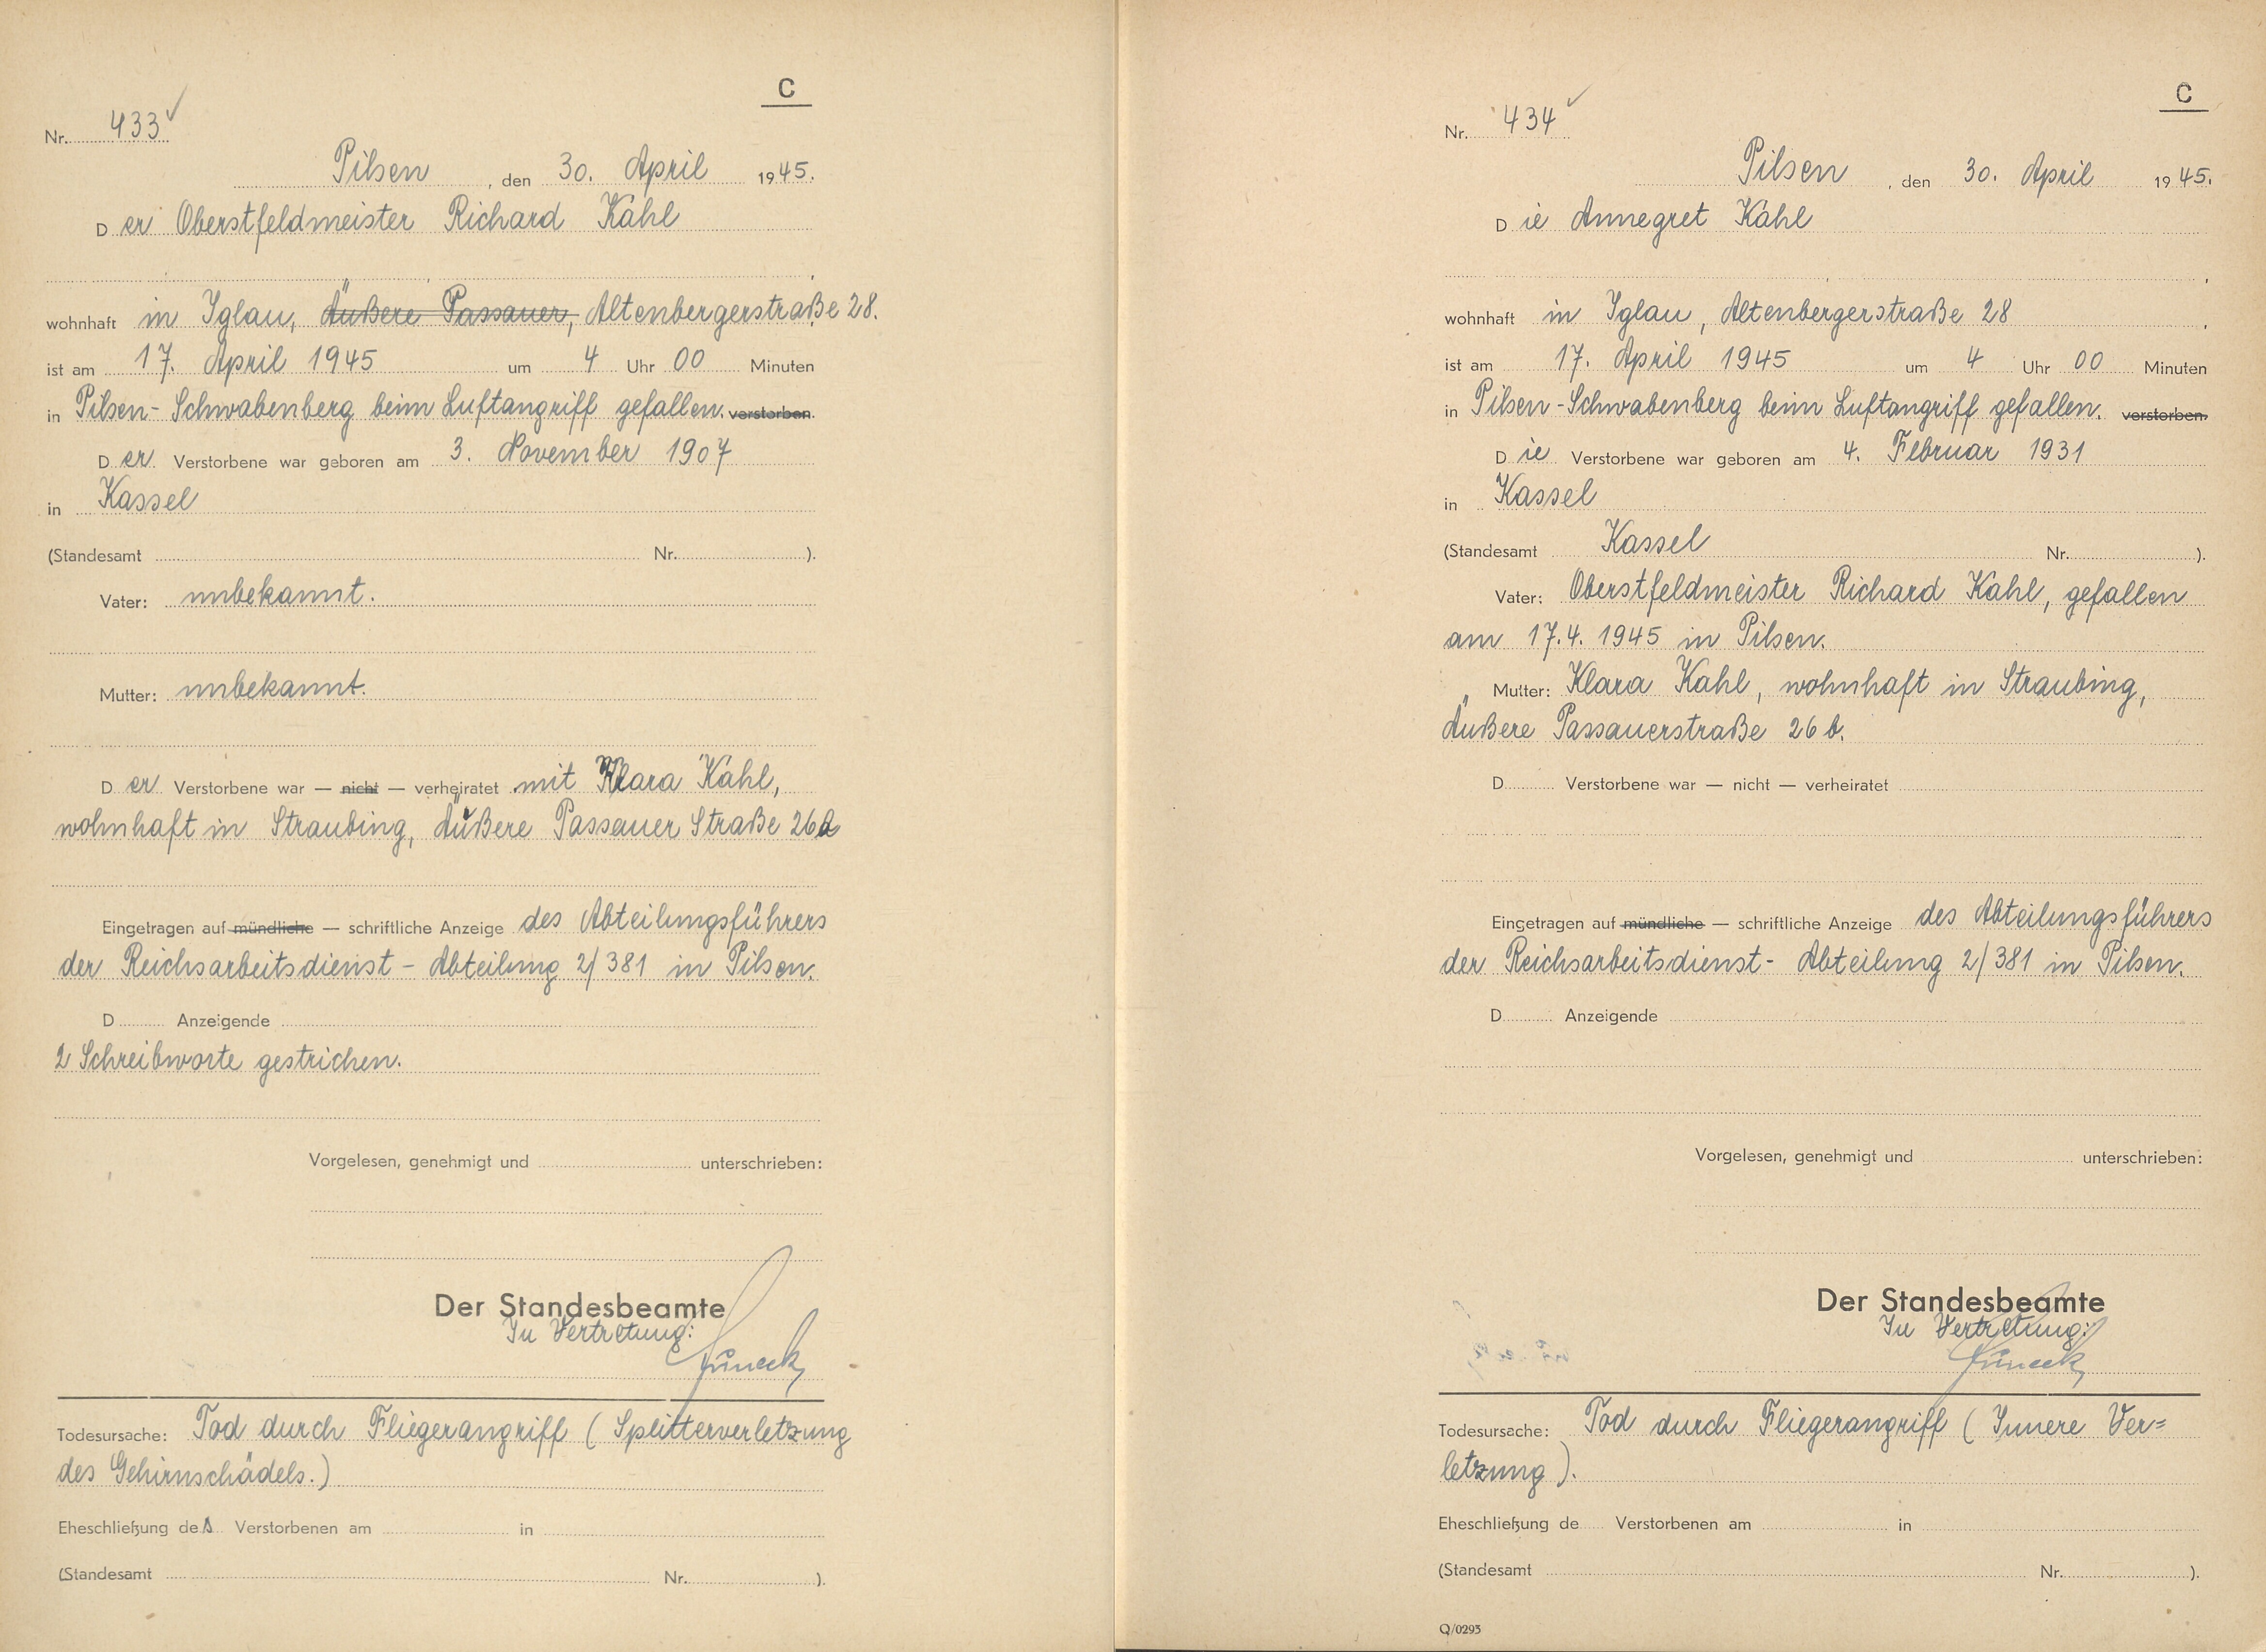 C
Nr. 433
Pilsen, den 30. April 1945.
Der Oberstfeldmeister Richard Kahl
wohnhaft in Iglau, Äußere Passauer, Altenbergerstraße 28.
ist am 17. April 1945 um 4 Uhr 00 Minuten
in Pilsen-Schwabenberg beim Luftangriff gefallen. verstorben.
Der Verstorbene war geboren am 3. November 1907
in Kassel
(Standesamt Nr. ).
Vater: unbekannt.
Mutter: unbekannt.
Der Verstorbene war — nicht — verheiratet mit Klara Kahl,
wohnhaft in Straubing, Äußere Passauer Straße 26
Eingetragen auf mündliche — schriftliche Anzeige des Abteilungsführers
der Reichsarbeitsdienst - Abteilung 2/381 in Pilsen.
D Anzeigende
2 Schreibworte gestrichen.
Vorgelesen, genehmigt und unterschrieben:
Der Standesbeamte
In Vertretung:
Todesursache: Tod durch Fliegerangriff (Splitterverletzung
des Gehirnschädels.)
Eheschließung des Verstorbenen am in
(Standesamt Nr. ).
C
Nr. 434
Pilsen, den 30. April 1945.
Die Annegret Kahl
wohnhaft in Iglau, Altenbergerstraße 28,
ist am 17. April 1945 um 4 Uhr 00 Minuten
in Pilsen-Schwabenberg beim Luftangriff gefallen. verstorben.
Die Verstorbene war geboren am 4. Februar 1931
in Kassel
(Standesamt Kassel Nr. ).
Vater: Oberstfeldmeister Richard Kahl, gefallen
am 17.4.1945 in Pilsen.
Mutter: Klara Kahl, wohnhaft in Straubing,
Äußere Passauerstraße 26 b.
D Verstorbene war — nicht — verheiratet
Eingetragen auf mündliche — schriftliche Anzeige des Abteilungsführers
der Reichsarbeitsdienst - Abteilung 2/381 in Pilsen.
D Anzeigende
Vorgelesen, genehmigt und unterschrieben:
Der Standesbeamte
In Vertretung:
Todesursache: Tod durch Fliegerangriff (Innere Ver=
letzung).
Eheschließung de Verstorbenen am in
(Standesamt Nr. ).
Q/0293